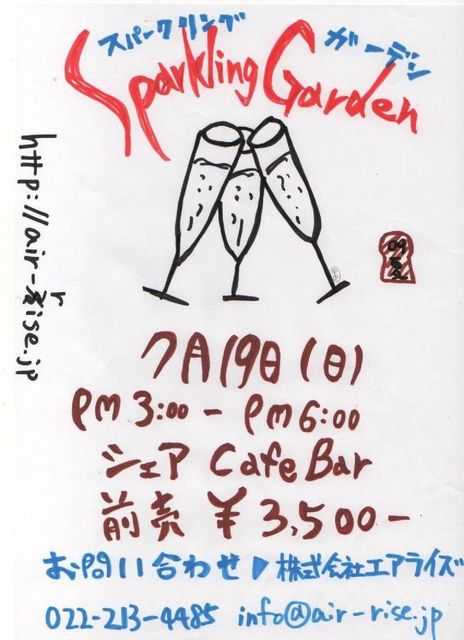 スパークリング ガーデン
Sparkling Garden
http://air-rise.jp
09
7月19日(日)
PM 3:00 - PM 6:00
シェア Cafe Bar
前売 ¥3,500-
お問い合わせ▶株式会社エアライズ
022-213-4485 info@air-rise.jp